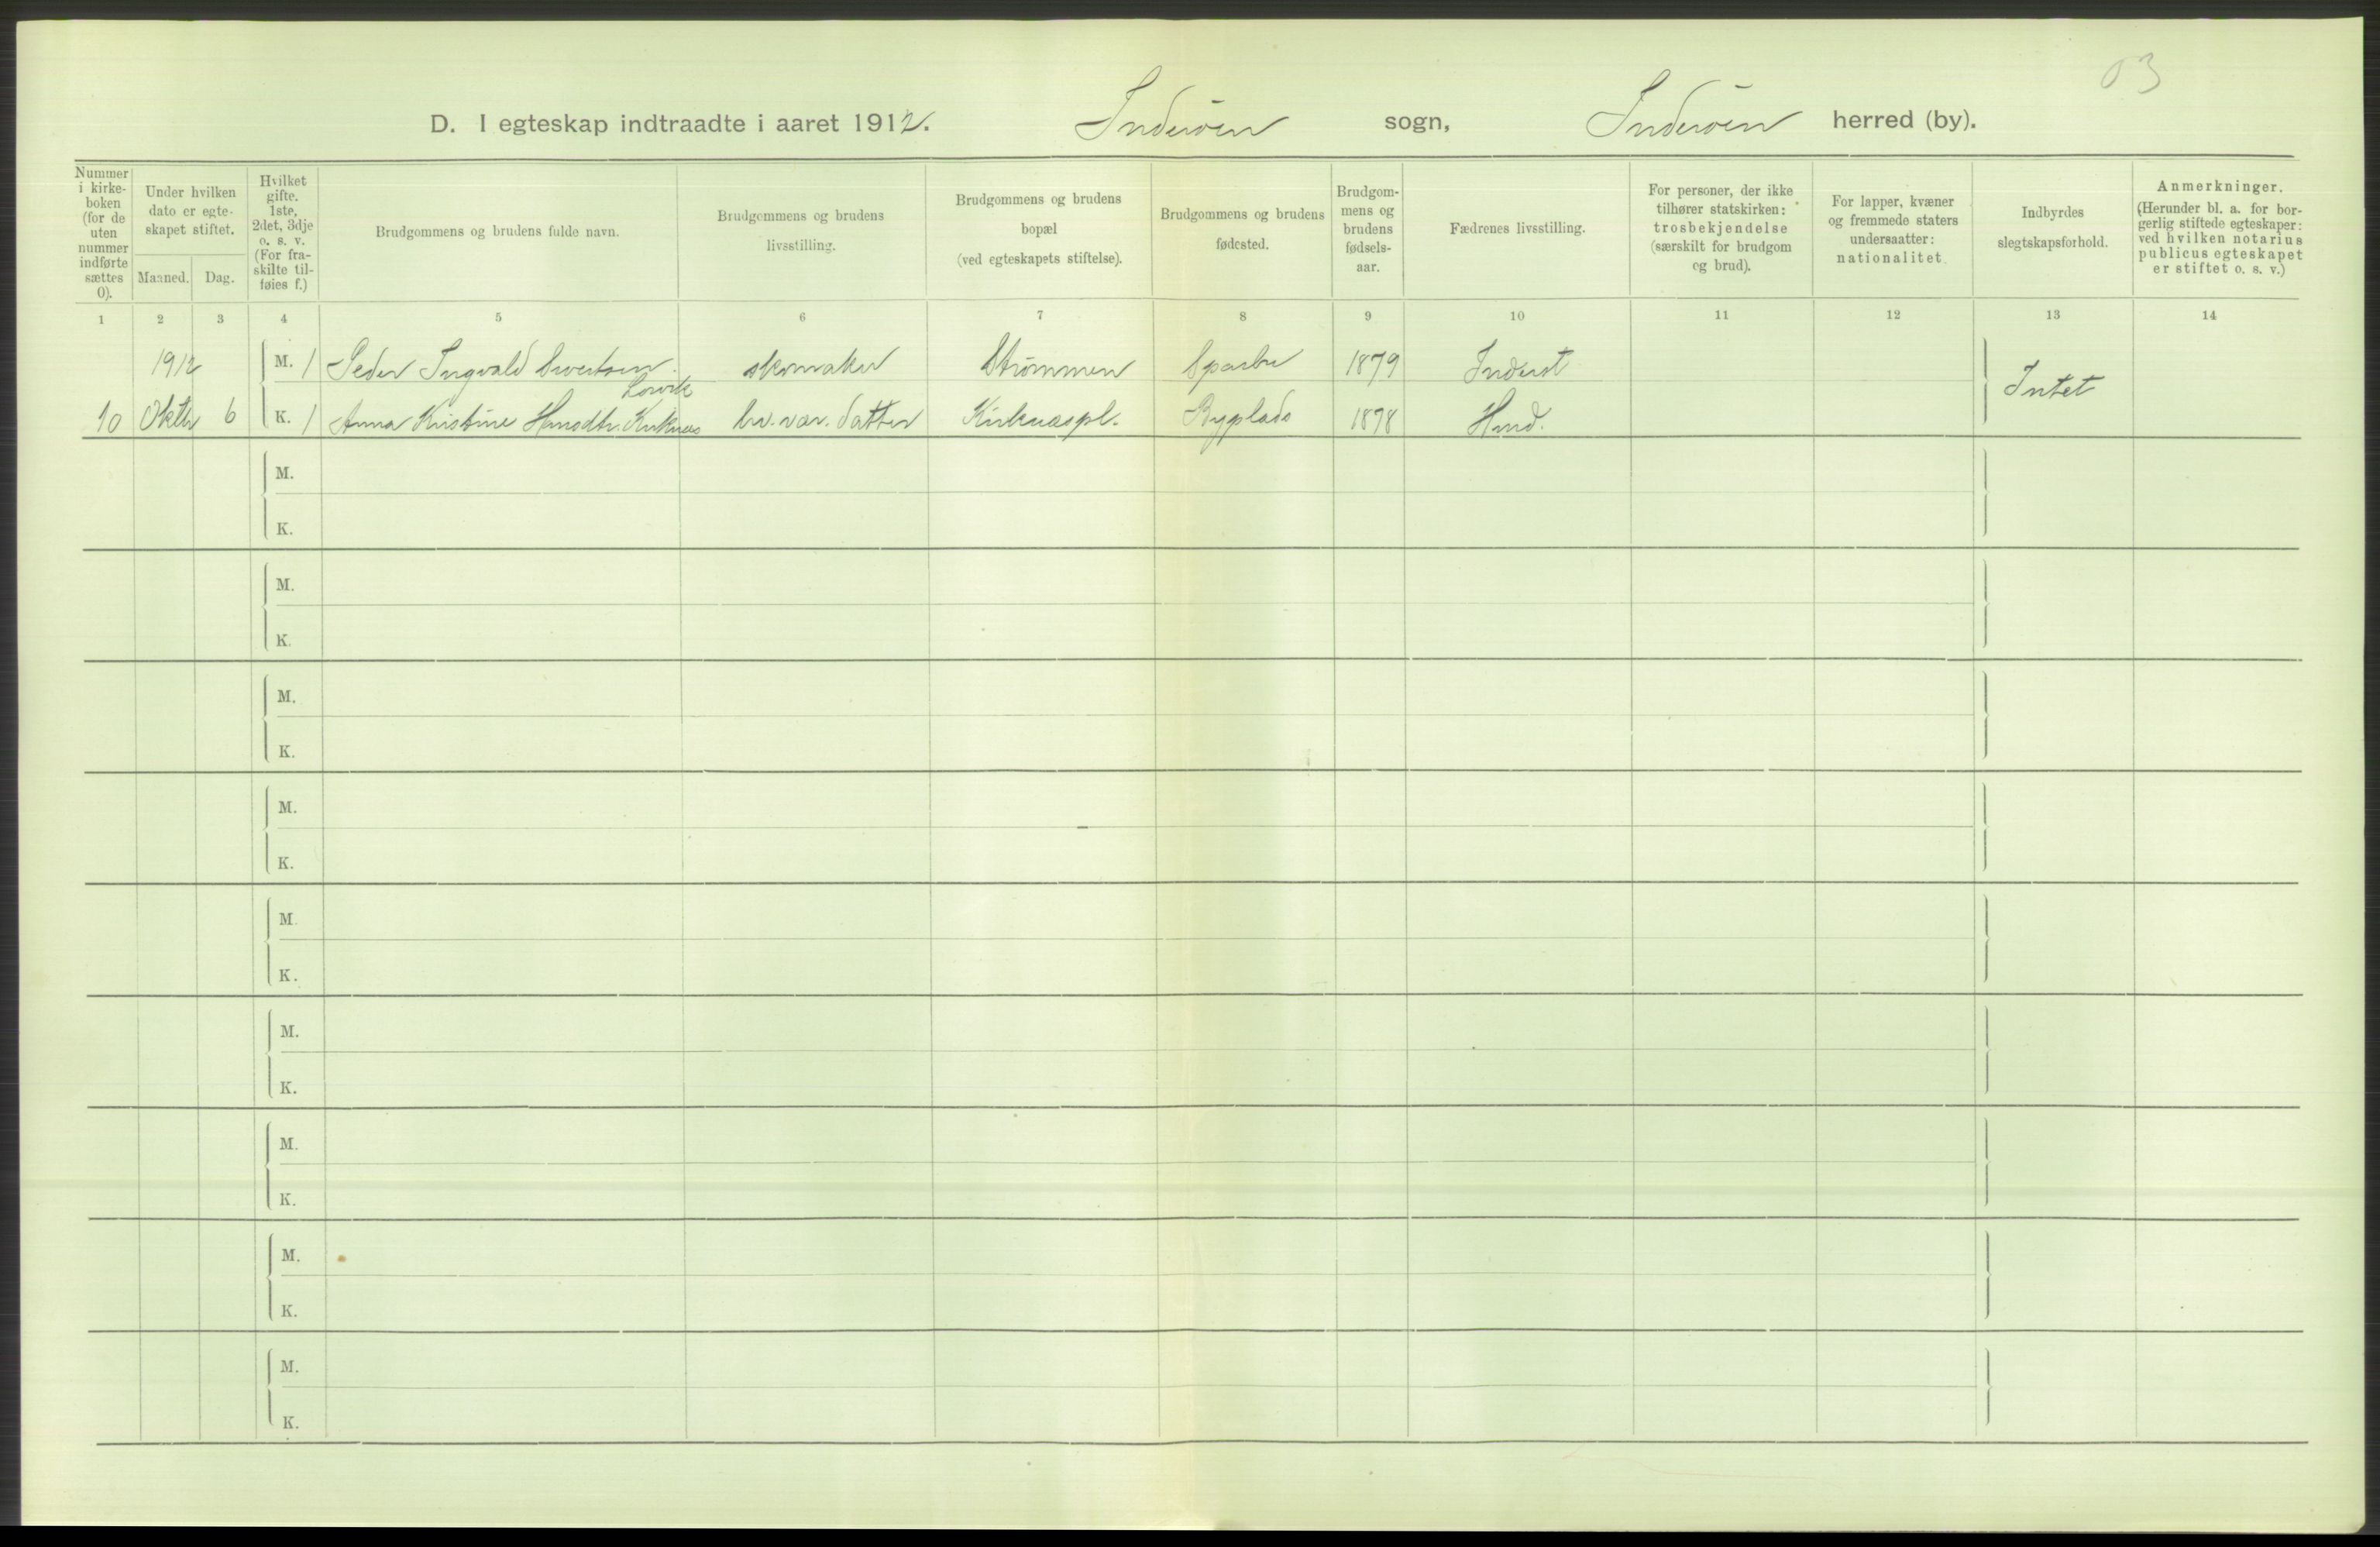 03
D. I egteskap indtraadte i aaret 1912. Inderøen sogn, Inderøen herred (by).
Nummer i kirke-boken (for de uten nummer indførte sættes 0).
Under hvilken dato er egte-skapet stiftet.
Maaned. Dag.
Hvilket gifte. 1ste, 2det, 3dje o. s. v. (For fra-skilte til-føies f.)
Brudgommens og brudens fulde navn.
Brudgommens og brudens livsstilling.
Brudgommens og brudens bopæl (ved egteskapets stiftelse).
Brudgommens og brudens fødested.
Brudgom-mens og brudens fødsels-aar.
Fædrenes livsstilling.
For personer, der ikke tilhører statskirken: trosbekjendelse (særskilt for brudgom og brud).
For lapper, kvæner og fremmede staters undersaatter: nationalitet
Indbyrdes slegtskapsforhold.
Anmerkninger. (Herunder bl. a. for bor-gerlig stiftede egteskaper: ved hvilken notarius publicus egteskapet er stiftet o. s. v.)
1 2 3 4 5 6 7 8 9 10 11 12 13 14
1912 M. 1 Peder Ingvald Sivertsen skomaker Strømmen Sparbu 1879 Inderst
Intet
10 Oktbr 6 K. 1 Anna Kristine Hansdtr. Kirknes hv. vær. datter Kirknespl. Byplads 1878 Hmd.
M.
K.
M.
K.
M.
K.
M.
K.
M
K.
M.
K.
M.
K.
M.
K.
M.
K.